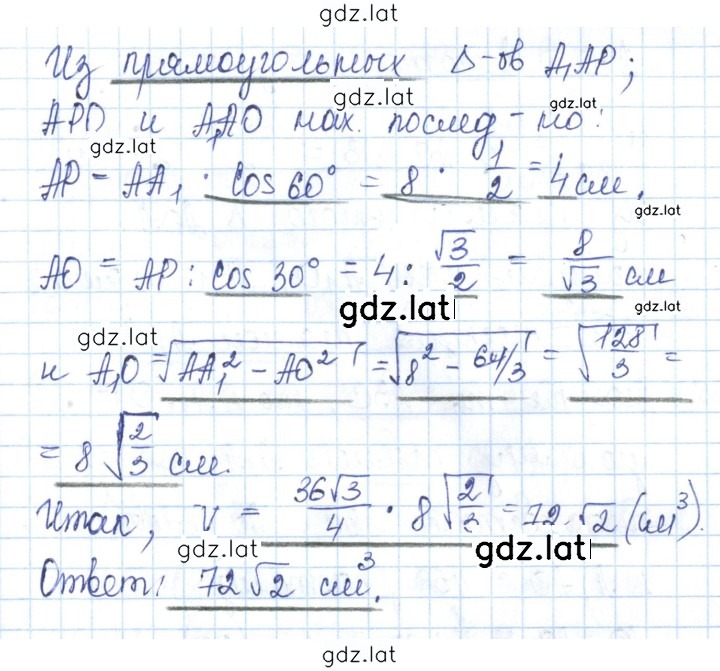 gdz.lat
Из прямоугольных Δ-ов A₁AP;
gdz.lat
gdz.lat
APO и A₁AO нах. послед-но:
gdz.lat
AP = AA₁ · cos 60° = 8 · 1/2 = 4 см.
gdz.lat
AO = AP : cos 30° = 4 : √3/2 = 8/√3 см
gdz.lat
gdz.lat
gdz.lat
и A₁O = √(AA₁² - AO²) = √(8² - 64/3) = √(128/3) =
= 8 √(2/3) см.
Итак, V = 36√3/4 · 8 √(2/3) = 72 √2 (см³).
gdz.lat
gdz.lat
Ответ: 72√2 см³.
gdz.lat